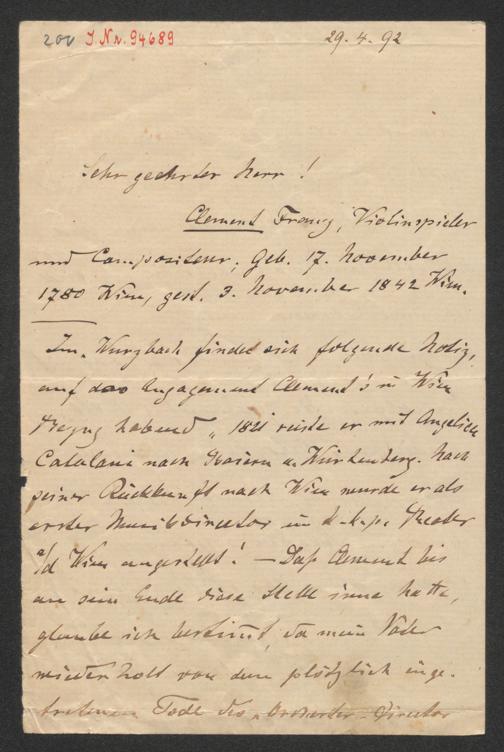 200 I.Nr. 94689 29. 4. 92
Sehr geehrter Herr!
Clement Franz, Violinspieler
und Compositeur, geb. 17. November
1780 Wien, gest. 3. November 1842 Wien.
Im Wurzbach findet sich folgende Notiz,
auf das Engagement Clement's in Wien
Bezug habend „ 1821 reiste er mit Angelica
Catalani nach Baiern u. Würtenberg. Nach
seiner Rückkunft nach Wien wurde er als
erster Musikdirector im k. k. p. Theater
a/d Wien angestellt! — Daß Clement bis
an sein Ende diese Stelle inne hatte,
glaube ich bestimmt, da mein Vater
wiederholt von dem plötzlich einge-
tretenen Tode des „Orchester-Director